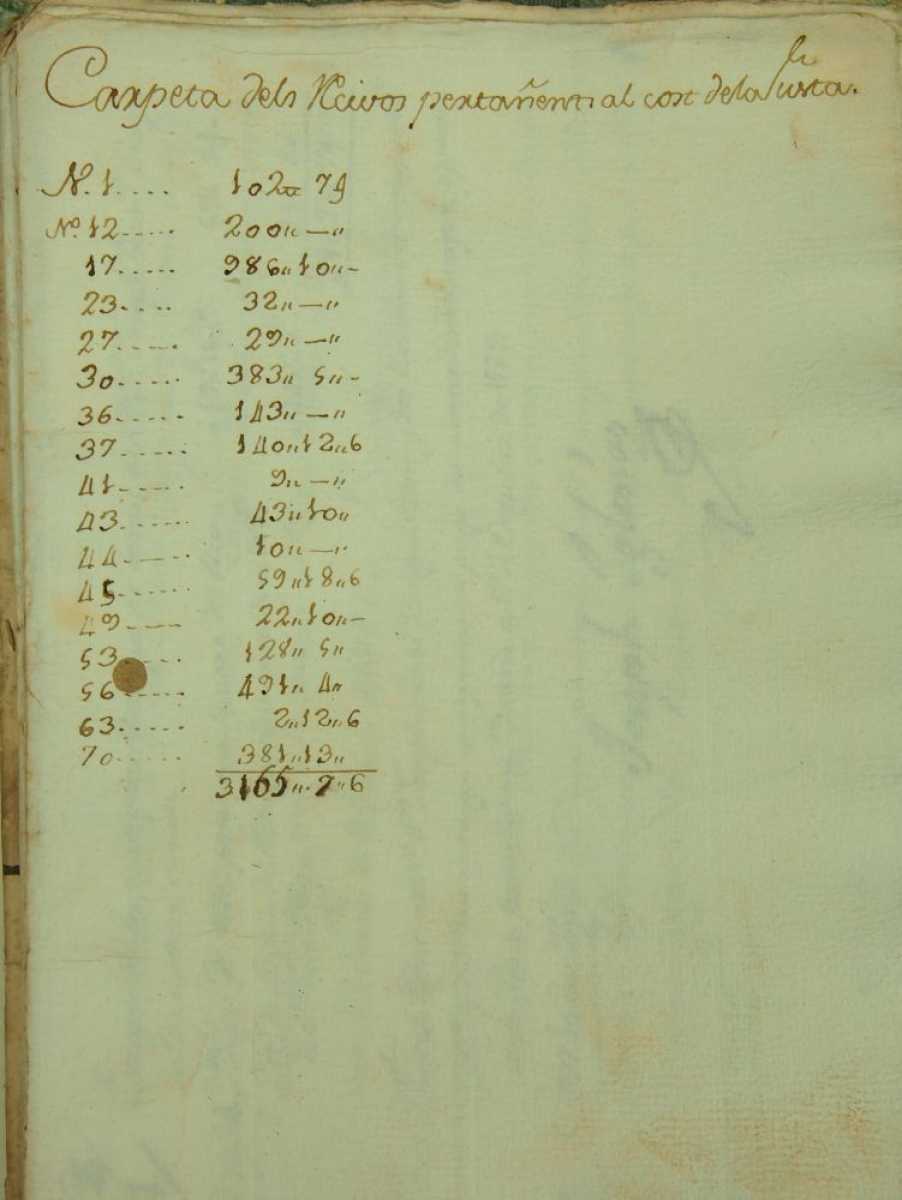 Carpeta dels Rcivos pertañents al cost dela Fusta.
N.º 1..... 102tt 7ß
Nº. 12..... 200,,—,,
17..... 986,,10,,-
23.... 32,,—,,
27..... 29,,—,,
30..... 383,, 5,,-
36..... 143,,—,,
37..... 140,,12,,6
41..... 9,,—,,
43..... 43,,10,,
44..... 10,,—,,
45..... 59,,18,,6
49..... 22,,10,,-
53..... 128,, 5,,
56..... 491,, 4,,
63..... 2,,12,,6
70..... 381,,13,,
3165,, 7,,6